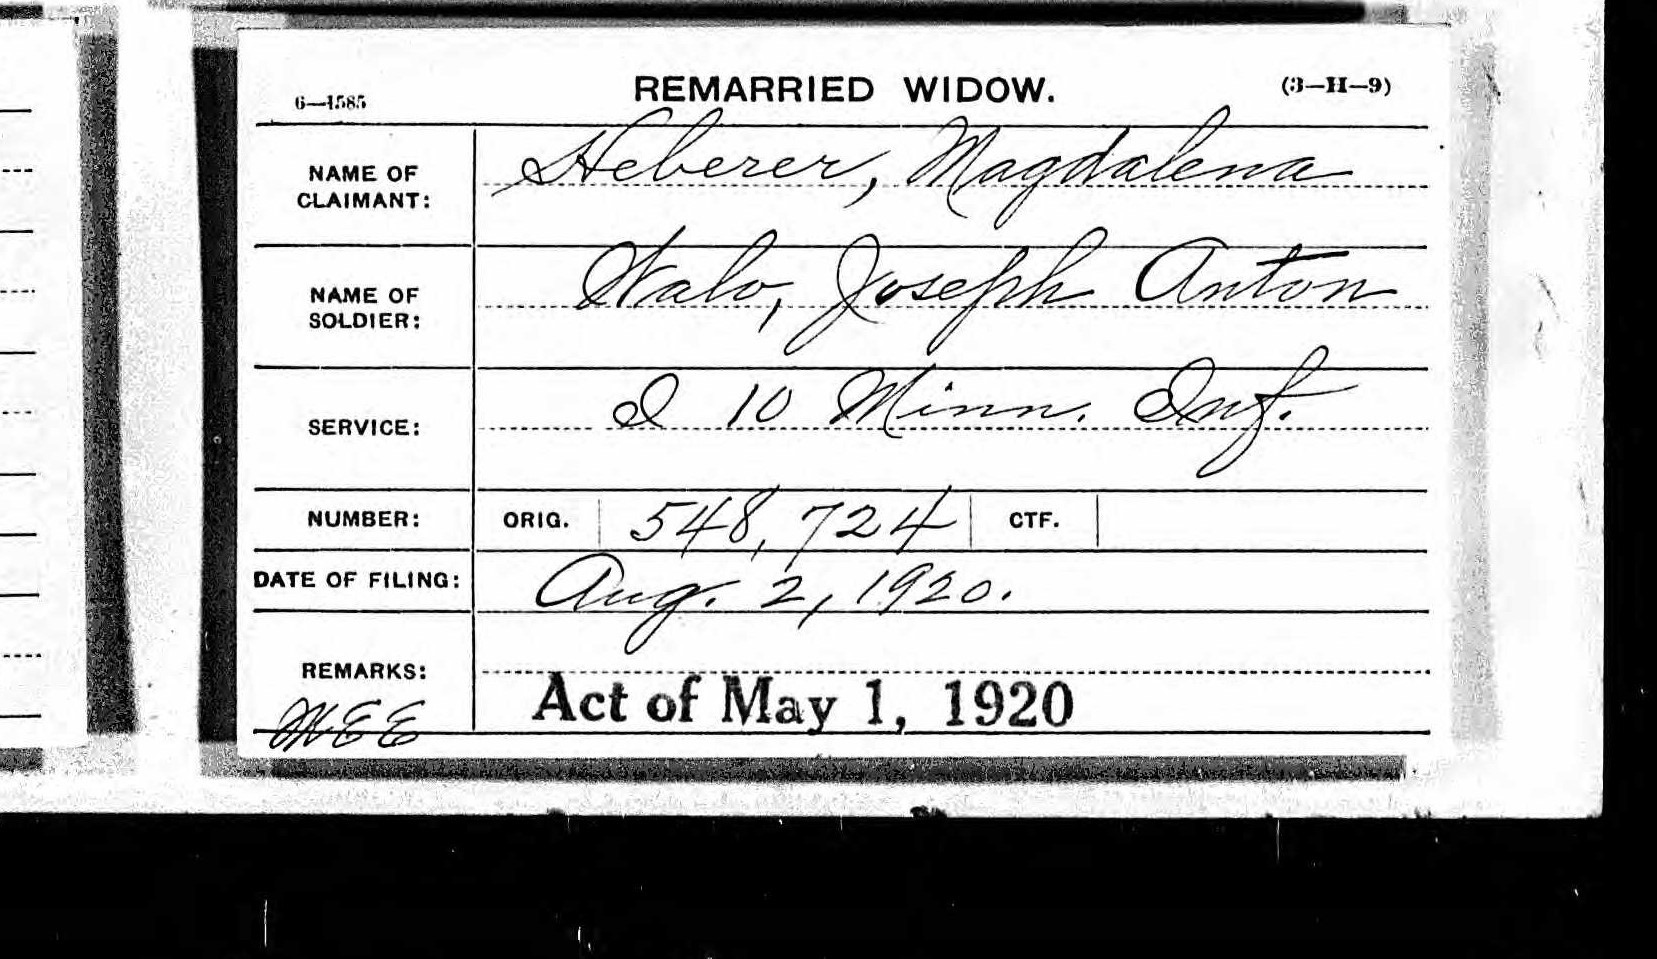 6—1585 REMARRIED WIDOW. (3—H—9)
NAME OF CLAIMANT: Heberer, Magdalena
NAME OF SOLDIER: Walo, Joseph Anton
SERVICE: I 10 Minn. Inf.
NUMBER: ORIG. 548,724 CTF.
DATE OF FILING: Aug. 2, 1920.
REMARKS:
Act of May 1, 1920
MEE